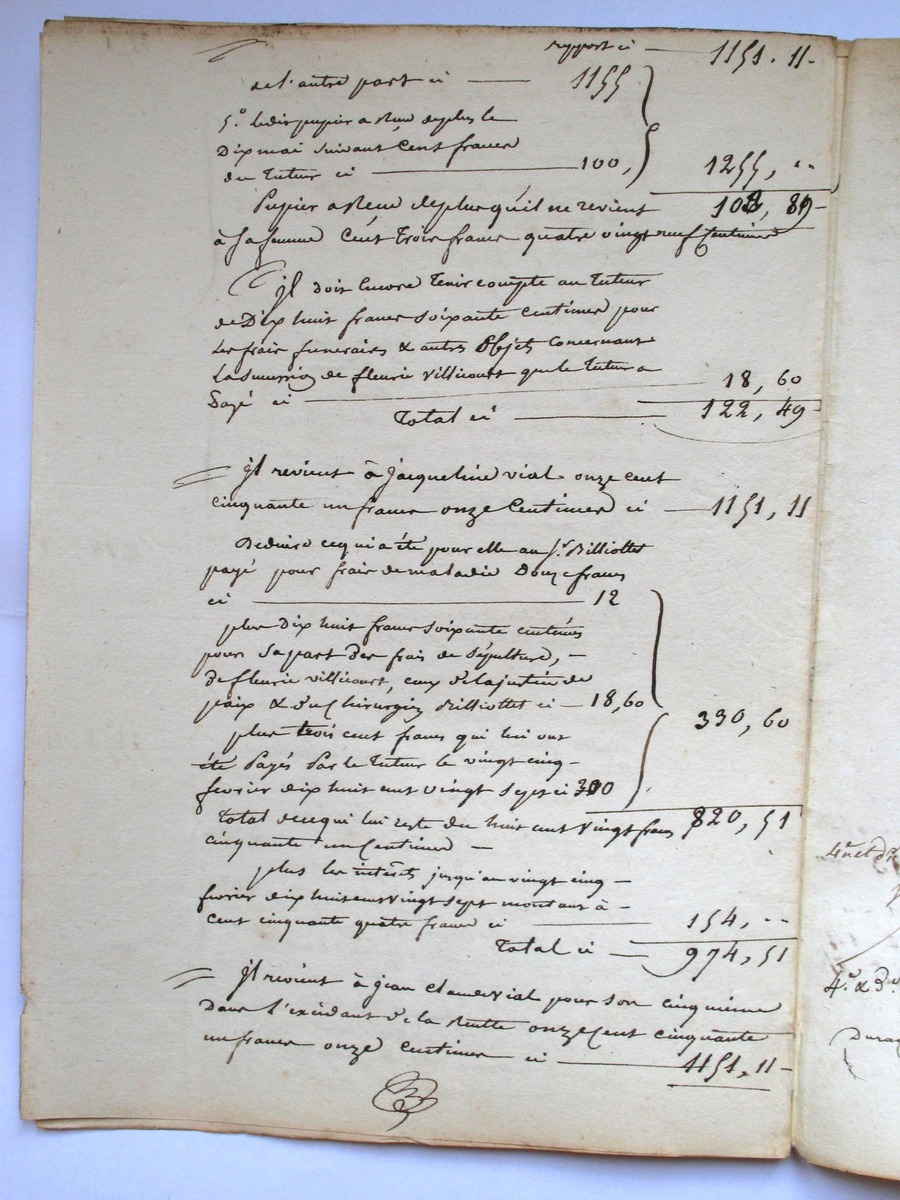 report ci — 1151. 11-
de l'autre part ci — 1155
5.° ledit pupier a reçu de plus le
Dix mai suivant Cent francs
du tuteur ci — 100,
1255, ..
Pupier a reçu de plus qu'il ne revient 103, 89-
à sa femme Cent trois francs quatre vingt neuf Centimes
il doit encore tenir compte au tuteur
de Dix huit francs soixante centimes pour
les frais funeraires & autres Objets Concernant
la succession de fleurie villicourt que le tuteur a
payé ci — 18, 60
Total ci — 122, 49-
il revient à jacqueline vial onze cent
cinquante un francs onze Centimes ci — 1151, 11
Deduire ce qui a été pour elle au S.r Billiottet
payé pour frais de maladie Douze francs
ci — 12
plus dix huit francs soixante centimes
pour sa part des frais de sépulture, -
de fleurie villicourt, ceux de la justice de
paix & du Chirurgien Billiottet ci — 18,60
330, 60
plus trois cent francs qui lui ont
été payés par le tuteur le vingt cinq -
fevrier dix huit cent vingt sept ci 300
Total de ce qui lui reste du huit cent vingt francs 820, 51
cinquante un Centimes —
plus les intérêts jusqu'au vingt cinq -
fevrier dix huit cent vingt sept montant à -
cent cinquante quatre francs ci — 154, ..
Total ci — 974, 51
il revient à jean claude vial pour son cinquieme
Dans l'excédant de la recette onze Cent cinquante
un francs onze centimes ci — 1151, 11-
4.° & 3.°